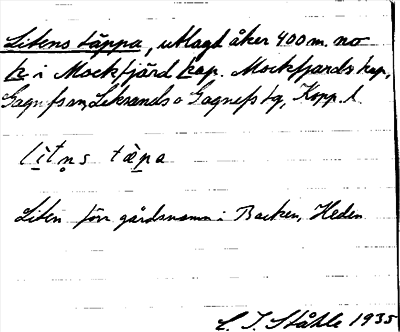 Litens täppa, utlagd åker 400 m. no
k i Mockfjärd kap. Mockfjärds kap,
Gagnefs sn, Leksands o Gagnefs tg, Kopp. l.
lìtn̥s tàpa
Liten förr gårdsnamn i Backen, Heden
C. I. Ståhle 1935